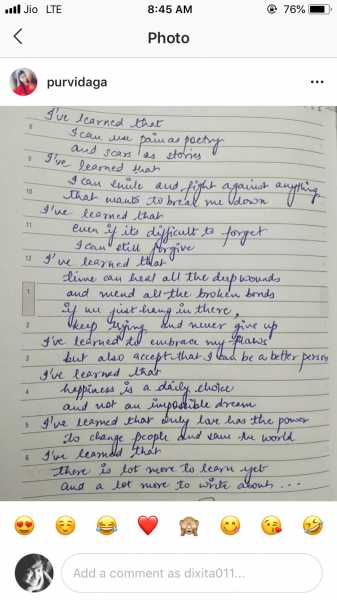 Jio LTE 8:45 AM 76%
Photo
purvidaga
I've learned that
8
I can use pain as poetry
and scars as stories
9 I've learned that
I can smile and fight against anything
10 that wants to break me down
I've learned that
11 even if its difficult to forget
I can still forgive
12 I've learned that
time can heal all the deep wounds
1 and mend all the broken bonds
if we just hang in there,
2 keep trying and never give up
I've learned to embrace my flaws
3 but also accept that I can be a better person
I've learned that
4 happiness is a daily choice
and not an impossible dream
5 I've learned that only love has the power
to change people and save the world
6 I've learned that
there is lot more to learn yet
and a lot more to write about...
Add a comment as dixita011...